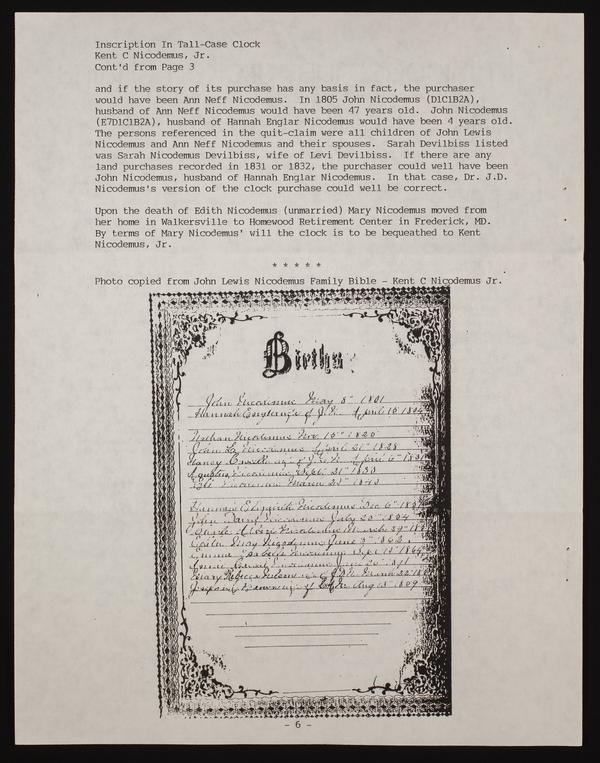 Inscription In Tall-Case Clock
Kent C Nicodemus, Jr.
Cont'd from Page 3
and if the story of its purchase has any basis in fact, the purchaser
would have been Ann Neff Nicodemus. In 1805 John Nicodemus (D1C1B2A),
husband of Ann Neff Nicodemus would have been 47 years old. John Nicodemus
(E7D1C1B2A), husband of Hannah Englar Nicodemus would have been 4 years old.
The persons referenced in the quit-claim were all children of John Lewis
Nicodemus and Ann Neff Nicodemus and their spouses. Sarah Devilbiss listed
was Sarah Nicodemus Devilbiss, wife of Levi Devilbiss. If there are any
land purchases recorded in 1831 or 1832, the purchaser could well have been
John Nicodemus, husband of Hannah Englar Nicodemus. In that case, Dr. J.D.
Nicodemus's version of the clock purchase could well be correct.
Upon the death of Edith Nicodemus (unmarried) Mary Nicodemus moved from
her home in Walkersville to Homewood Retirement Center in Frederick, MD.
By terms of Mary Nicodemus' will the clock is to be bequeathed to Kent
Nicodemus, Jr.
* * * * *
Photo copied from John Lewis Nicodemus Family Bible - Kent C Nicodemus Jr.
Births
John Nicodemus May 8" 1801
Hannah Englar of J.N. April 10 1804
Nathan Nicodemus Nov. 15" 1826
John L. Nicodemus April 21" 1828
Nancy of J.L.N. April 6" 1831
Nicodemus Sept. 21" 1833
Nicodemus March 1843
Elizabeth Nicodemus Dec 6"
John Nicodemus July 20"
Nicodemus March 29"
May Nicodemus June 3" 1862
Emma Nicodemus Sept 15" 1864
Nicodemus June
Mary Rebecca of March 22"
of Aug 15" 1809
- 6 -